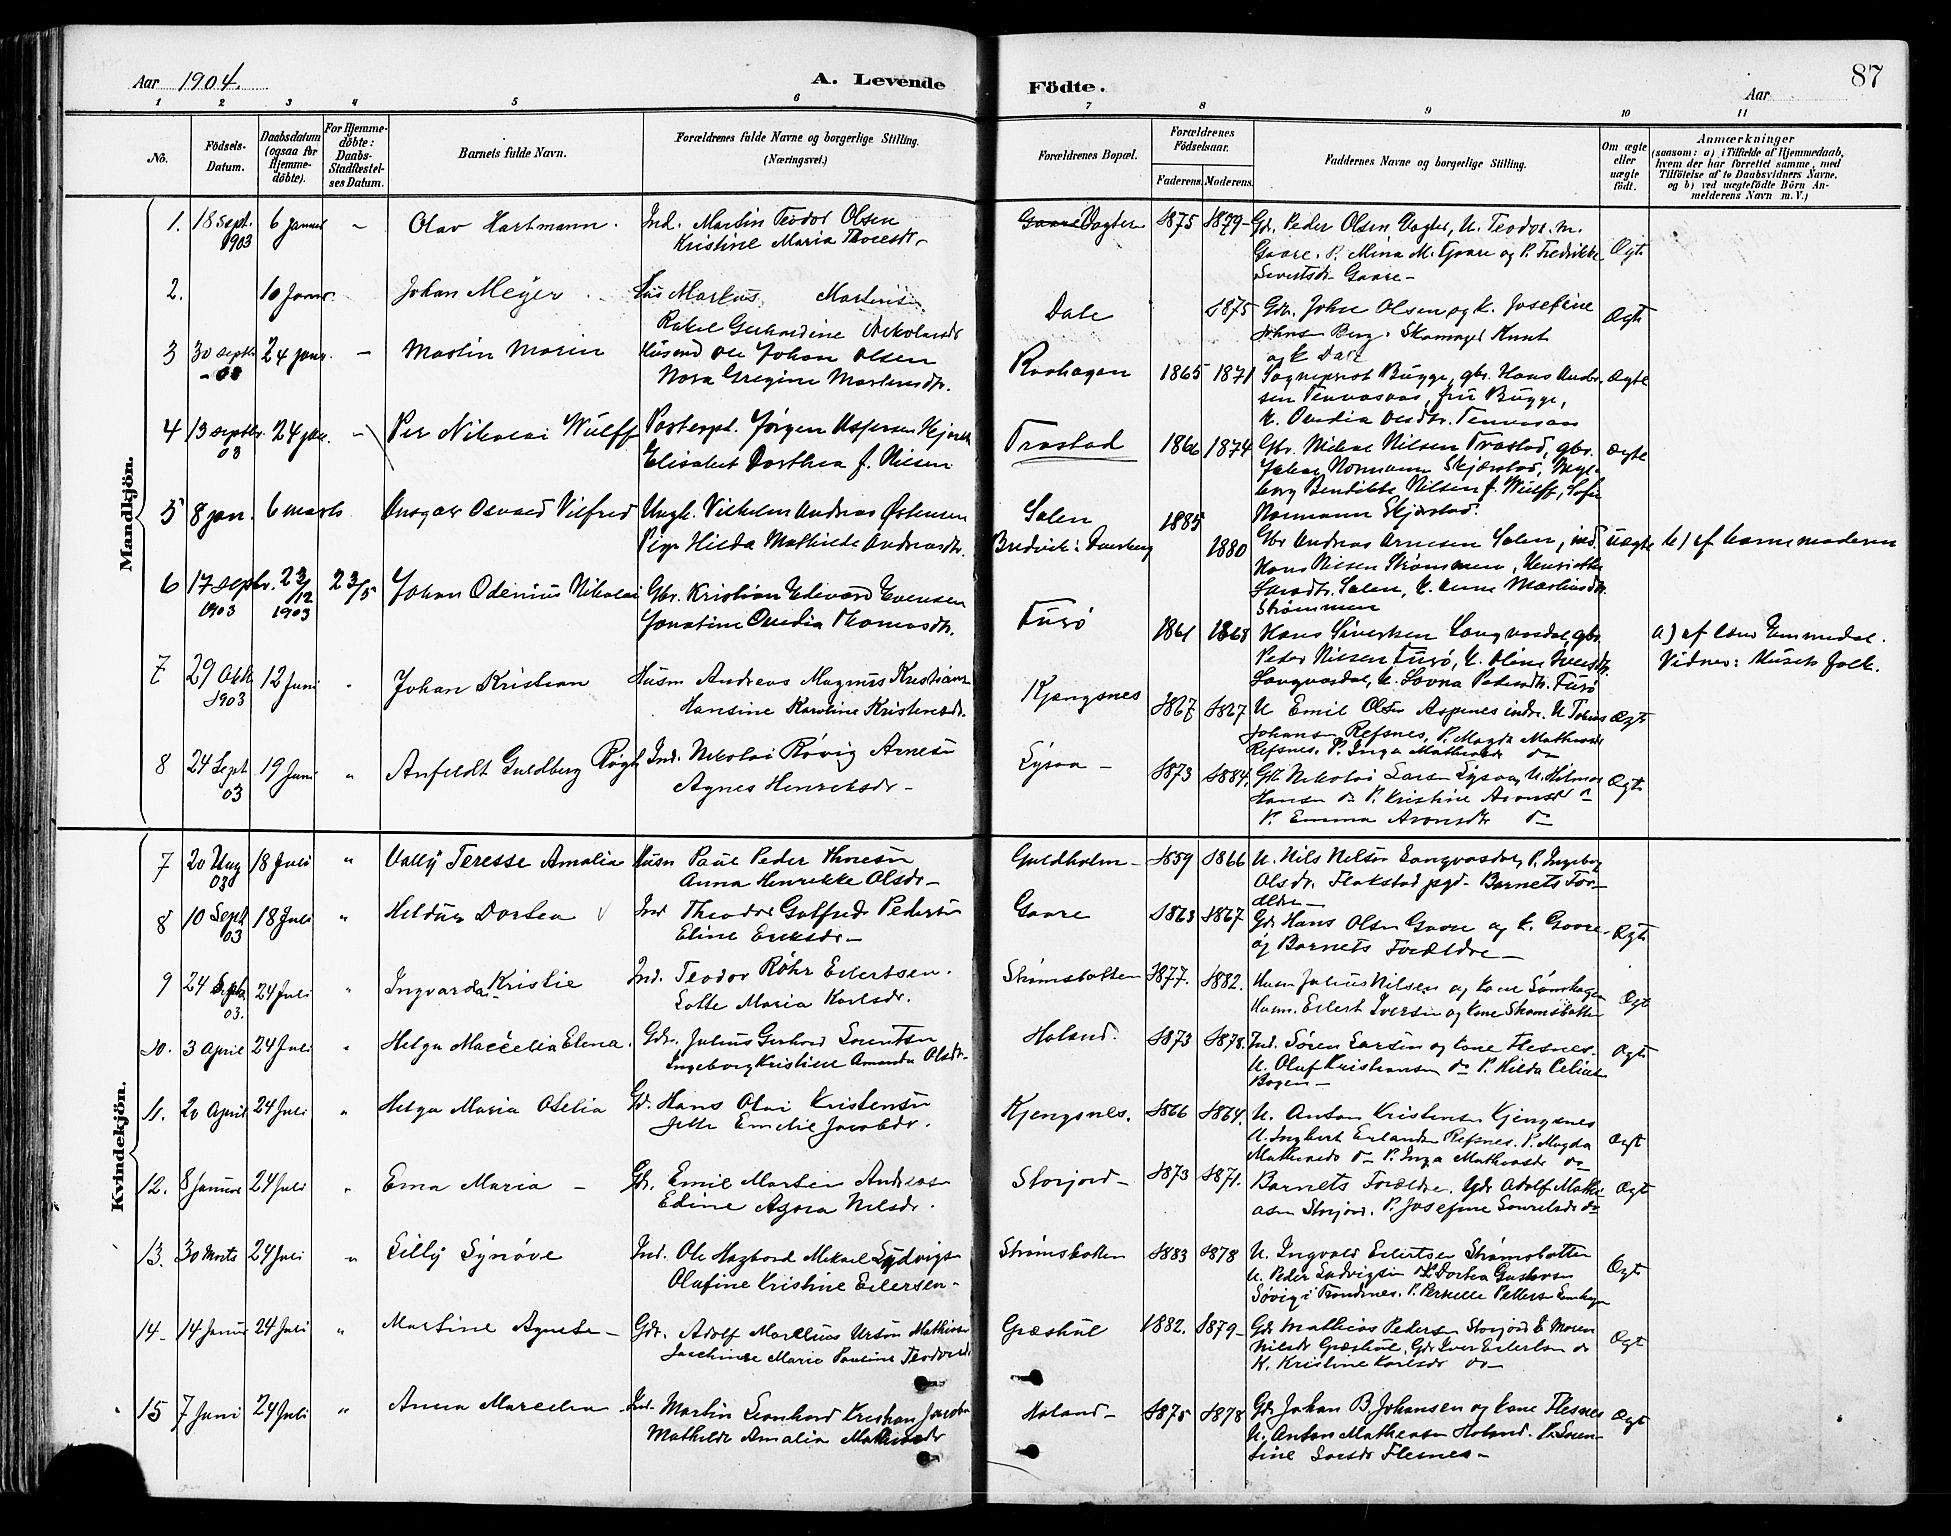 Aar 1904.
A. Levende
Födte.
Aar
87
1 2 3 4 5 6 7 8 9 10 11
No.
Födsels-
Datum.
Daabsdatum
(ogsaa for
Hjemme-
döbte).
For Hjemme-
döbte:
Daabs-
Stadfæstel-
ses Datum.
Barnets fulde Navn.
Forældrenes fulde Navne og borgerlige Stilling.
(Næringsvei.)
Forældrenes Bopæl.
Forældrenes
Födselsaar.
Faderens. Moderens.
Faddernes Navne og borgerlige Stilling.
Om ægte
eller
uægte
födt.
Anmærkninger
(saasom: a) i Tilfælde af Hjemmedaab,
hvem der har forrettet samme, med
Tilföielse af to Daabsvidners Navne,
og b) ved uægtefödte Börn An-
melderens Navn m. V.)
Mandkjön.
1. 18 Sept. 1903 6 Januar Olav Hartmann.
Ind. Martin Teodor Olsen
Kristine Maria
Vagter 1875 1879
Gdr. Peder Olsen Vagter, U. Teodor M.
Gaare. P. Mina M. Gaare og P. Fredrikke
Sivertsdr. Gaare - Ægt
2. 10 Janr. Johan Meyer
Hus Markus Martinsen
Rakel Gerhardine
Dale 1875
Gdr. John Olsen og k. Josefine
Berg. Knut
og k Dale Ægt
3 30 septbr -03 24 janr. - Martin Marin
Husmd Ole Johan Olsen
Nora Gregine Martinsdtr.
Rashagen 1865 1871
Sogneprest Bugge, gbr. Hans Andr.
sen fru Bugge,
k. Ovedia Ægte
4 13 septbr. 03 24 jan. - Per Nikolai Wulff
Jørgen
Elisabet Dorthea f. Nilsen
Trastad 1866 1874
Gbr. Mikal Nilsen Trastad, gbr.
Normann Skjærstad, Inge-
borg Bendikke Nilsen f. Wulff, Sofie
Normann Skjærstad. Ægte
5 8 jan. 6 marts Ansgar Osvald Vilfred
Ungk. Vilhelm Andreas Østensen
Pige Hilda Mathilde Andreasdtr.
Salen
Bredvik i 1885 1880
Gbr Andreas Arnesen Salen, ind.
Hans Nilsen Strømmen, Henriette
Larsdtr. Salen, k. Anne Martinsdtr.
Strømmen Uægte b) af barnemoderen
6 17 septbr. 1903 23/12 1903 23/5 Johan Odenius Nikolai
Gbr. Kristian Edevard Evensen
Jonatine Ovedia Thomasdtr.
Furø 1861 1868
Hans Siversen Langvasdal, gbr.
Peter Nilsen Furø, k. Oline
Langvasdal, k. Lovna Pedersdtr. Furø
a) af
Vidner: Husets folk.
7 29 Oktb 1903 12 Juni Johan Kristian
Husm Andreas Magnus Kristians
Hansine Karoline Kristensdr.
Kjengsnes 1867 1867
U Emil Olsen Aspenes indr. U Tobias
Johansen Refsnes, P. Magda Mathiasdr
Refsnes. P. Inga Mathiasdr do Ægt
8 24 Sept 03 19 Juni " Anfeldt Guldberg
Ind. Nikolai Røvig Arnesen
Agnes Henriksdr -
Lysaa - 1873 1884
Gdr Nikolai Larsen Lysaa, U. Hilmar
Hansen do P. Kristine Aronsdr do
P. Emma Aronsdr do Ægt
Kvindekjön.
7 20 Aug 03 18 Juli " Vally Teresse Amalia
Husm Paul Peder Thoresen
Anna Henrikke Olsdr -
Guldholm - 1859 1866
U. Nils Nilsen Langvasdal, P. Ingeborg
Olsdr. Flakstad pgd. Barnets For-
ældre -
8 10 Sept 03 18 Juli " Heldur Dortea
Ind Theodor Gotfred Pedersen
Eline Eriksdr -
Gaare 1863 1867
Gdr Hans Olsen Gaare og k. Gaare
og Barnets Forældre - Ægt
9 24 Septb. 03. 24 Juli " Ingvarda Kristie
Ind. Teodor Røhr Eilertsen.
Lotte Maria Karlsdr.
Strømsbotten 1877. 1882.
Husm Julius Nilsen og kone
Husm. Eilert Iversen og kone Strømsbotten Ægt
10. 3 April 24 Juli " Helga Marcelia Elena.
Gdr. Julius Gerhard Lorentsen
Ingeborg Kristine Amanda Olsdr -
Holand. 1873 1878.
Ind. Søren Larsen og kone Flesnes.
U. Oluf Kristiansen do P. Hilda
Bogen - Ægt
11. 20 April 24 Juli " Helga Maria Otelia
Gd. Hans Olai Kristensen
Jette Emelie Jacobdr.
Kjengsnes. 1866 1864.
U. Anton Kristensen Kjengsnes
U. Ingbert Erlandsen Refsnes. P. Magda
Mathiasdr do P. Inga Mathiasdr do Ægt
12. 8 Januar 24 Juli " Ema Maria -
Gdr. Emil Martin Andreasen
Edine Agora Nilsdr.
Storjord - 1873 1871.
Barnets Forældre. Gdr Adolf Mathi-
asen Storjord. P. Josefine do Ægt
13. 30 Marts 24 Juli " Lilly Synøve
Ind. Ole Hagbard Mikael Ludvigsen
Olufine Kristine Eilersen -
Strømsbotten 1883 1878
U. Ingvald Eilertsen Strømsbotten
U. Peder Ludvigsen Dortea Gustavsen
Søvig i Trondenes. P. Pernelle Ægt
14 - 14 Januar 24 Juli " Martine Agnete -
Gdr. Adolf Marelius Mathias
Jaschinne Marie Pauline
Græshul 1882. 1879 -
Gdr Mathias Pedersen Storjord Maren
Nilsdr Græshul, Gdr Iver Eilertsen do
K. Kristine Karlsdr do Ægt
15 7 Juni 24 Juli " Anna Marcelia
Ind. Martin Leonhard Kristian
Mathilde Amalia Mathiasdr
Holand - 1875 1878
Gdr Johan B. Johansen og kone Flesnes
U. Anton Mathiasen Holand. P. Loren-
tine Larsdr Flesnes - Ægt